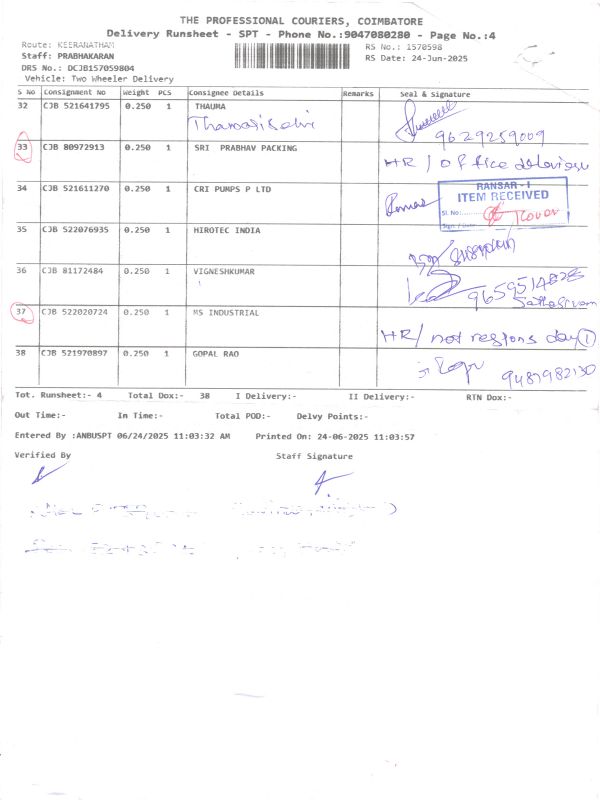 THE PROFESSIONAL COURIERS, COIMBATORE
Delivery Runsheet - SPT - Phone No.:9047080280 - Page No.:4
Route: KEERANATHAM RS No.: 1570598
Staff: PRABHAKARAN RS Date: 24-Jun-2025
DRS No.: DCJB157059804
Vehicle: Two Wheeler Delivery
S No Consignment No Weight PCS Consignee Details Remarks Seal & Signature
32 CJB 521641795 0.250 1 THAUMA
9629259009
33 CJB 80972913 0.250 1 SRI PRABHAV PACKING
HR / office
34 CJB 521611270 0.250 1 CRI PUMPS P LTD
RANSAR-I
ITEM RECEIVED
Sl. No:
1 Cover
Sign / Date
35 CJB 522076935 0.250 1 HIROTEC INDIA
36 CJB 81172484 0.250 1 VIGNESHKUMAR
37 CJB 522020724 0.250 1 MS INDUSTRIAL
HR / not respons day 1
38 CJB 521970897 0.250 1 GOPAL RAO
9487982130
Tot. Runsheet:- 4 Total Dox:- 38 I Delivery:- II Delivery:- RTN Dox:-
Out Time:- In Time:- Total POD:- Delvy Points:-
Entered By :ANBUSPT 06/24/2025 11:03:32 AM Printed On: 24-06-2025 11:03:57
Verified By Staff Signature